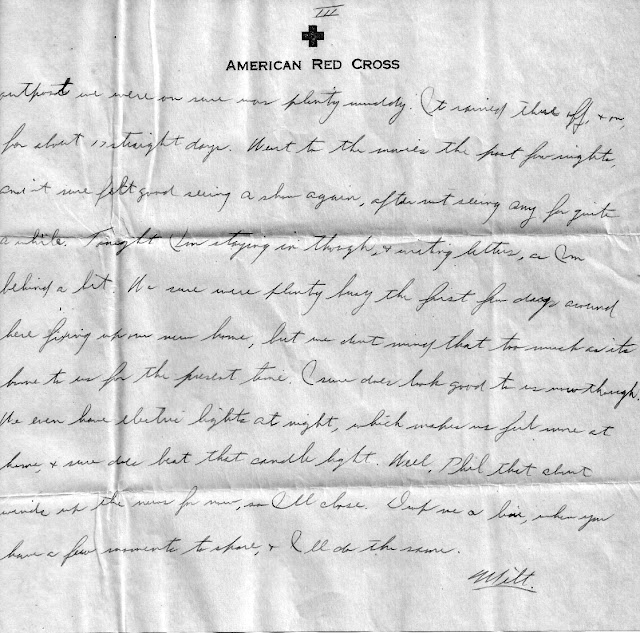 III
AMERICAN RED CROSS
outpost we were on sure was plenty muddy. It rained there off, & on,
for about 17 straight days. Went to the movies the past few nights,
and it sure felt good seeing a show again, after not seeing any for quite
a while. Tonight I'm staying in though, & writing letters, as I'm
behind a bit. We sure were plenty busy the first few days around
here fixing up our new home, but we dont mind that too much as its
home to us for the present time. I sure does look good to us now though.
We even have electric lights at night, which makes us feel more at
home, & sure does beat that candle light. Well, Phil that about
winds up the news for now, so I'll close. Drop me a line, when you
have a few moments to spare, & I'll do the same.
Milt.